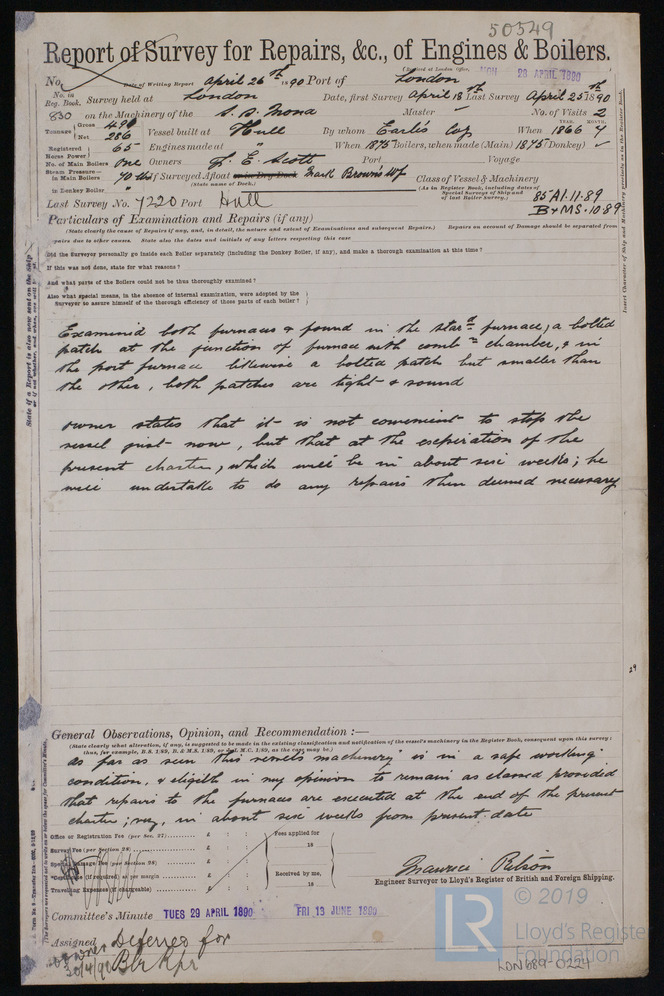 50549
Report of Survey for Repairs, &c., of Engines & Boilers.
(Received at London Office, 28 APRIL 1890
No. Date of Writing Report April 26th 1890 Port of London
No. in Reg. Book. Survey held at London Date, first Survey April 18th Last Survey April 25th 1890
830 on the Machinery of the S.S. Mona Master ✓ No. of Visits 2
Tonnage Gross 490 Net 286 Vessel built at Hull By whom Earle's Coy When YEAR. 1866 MONTH. 7
Registered Horse Power 65 Engines made at " When 1875 Boilers, when made (Main) 1875 (Donkey) ✓
No. of Main Boilers One Owners E. Scott Port Voyage
Steam Pressure in Main Boilers 70 lbs If Surveyed Afloat or in Dry Dock Mark Browns Wf Class of Vessel & Machinery
(State name of Dock.) (As in Register Book, including dates of Special Surveys of Ship and of last Boiler Survey.)
in Donkey Boiler "
85 A1. 11.89
B & MS. 10.89
Last Survey No. 7220 Port Hull
Particulars of Examination and Repairs (if any)
(State clearly the cause of Repairs if any, and, in detail, the nature and extent of Examinations and subsequent Repairs.) Repairs on account of Damage should be separated from
repairs due to other causes. State also the dates and initials of any letters respecting this case
Did the Surveyor personally go inside each Boiler separately (including the Donkey Boiler, if any), and make a thorough examination at this time?
If this was not done, state for what reasons?
And what parts of the Boilers could not be thus thoroughly examined?
Also what special means, in the absence of internal examination, were adopted by the
Surveyor to assure himself of the thorough efficiency of those parts of each boiler?
Examined both furnaces & found in the starbd furnace, a bolted
patch at the junction of furnace with combn chamber, & in
the port furnace likewise a bolted patch but smaller than
the other, both patches are tight & sound
Owner states that it is not convenient to stop the
vessel just now, but that at the expiration of the
present charter, which will be in about six weeks; he
will undertake to do any repairs then deemed necessary
General Observations, Opinion, and Recommendation :—
(State clearly what alteration, if any, is suggested to be made in the existing classification and notification of the vessel's machinery in the Register Book, consequent upon this survey;
thus, for example, B.S. 1/89, B. & M.S. 1/89, or L.M.C. 1/89, as the case may be.)
As far as seen this vessels machinery is in a safe working
condition, & eligible in my opinion to remain as classed provided
that repairs to the furnaces are executed at the end of the present
charter; say, in about six weeks from present date
Office or Registration Fee (per Sec. 27) £ : : Fees applied for
Survey Fee (per Section 28) £ : : 18
Special Damage Fee (per Section 28) £ : :
Certificate (if required) as per margin £ : : Received by me,
Travelling Expenses (if chargeable) £ : : 18
Maurice Ritson
Engineer Surveyor to Lloyd's Register of British and Foreign Shipping.
Committee's Minute TUES 29 APRIL 1890 FRI 13 JUNE 1890
Assigned Deferred for
Blr Rpr
© 2019
LR
Lloyd's Register
Foundation
LDN689-0224